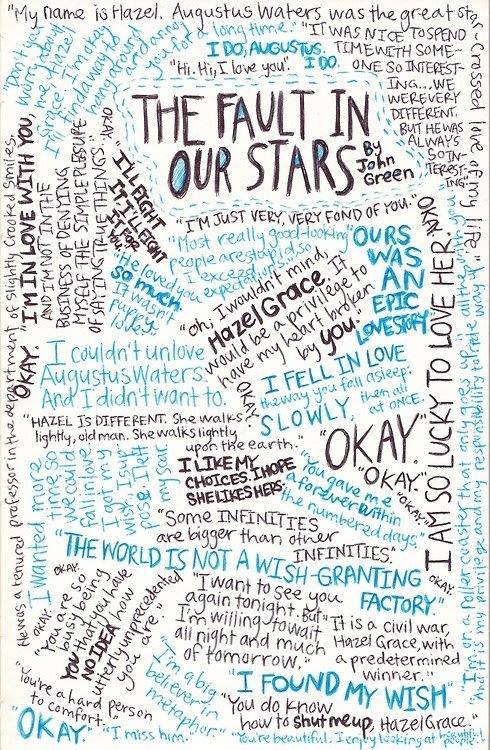 "My name is Hazel. Augustus Waters was the great star-crossed love of my life."
"Don't worry about me, Hazel Grace. I'm okay. I'll find a way to hang around and annoy you for a long time."
I DO, AUGUSTUS.
I DO.
"Hi. Hi, I love you".
"IT WAS NICE TO SPEND
TIME WITH SOME-
ONE SO INTEREST-
ING...WE
WERE VERY
DIFFERENT,
BUT HE WAS
ALWAYS
SO IN-
TEREST-
ING."
THE FAULT IN
OUR STARS
By
John
Green
He was a tenured professor in the department of Slightly Crooked Smiles.
"I'M IN LOVE WITH YOU,
AND I'M NOT IN THE
BUSINESS OF DENYING
MYSELF THE SIMPLE PLEASURE
OF SAYING TRUE THINGS."
OKAY.
OKAY.
"I'LL FIGHT
IT. I'LL FIGHT
IT FOR
YOU."
"I'M JUST VERY, VERY FOND OF YOU."
"Most really good-looking
people are stupid, so
I exceed
expectations."
"He loved you
so much.
It wasn't
puppy
love."
OURS
WAS
AN
EPIC
LOVE STORY
"oh, I wouldn't mind,
Hazel Grace. It
would be a privilege to
have my heart broken
by you."
I AM SO LUCKY TO LOVE HER.
OKAY.
I couldn't unlove
Augustus Waters.
And I didn't want to.
I FELL IN LOVE
the way you fall asleep:
SLOWLY, then all
at ONCE.
OKAY.
"HAZEL IS DIFFERENT. She walks
lightly, old man. She walks lightly
upon the earth."
"OKAY."
"OKAY."
"OKAY."
I LIKE MY
CHOICES. I HOPE
SHE LIKES HERS.
I wanted more
time so
we could
fall in love.
I got my
wish, I sup-
pose. I left
my scar.
"You gave me
a forever within
the numbered days"
"Some INFINITIES
are bigger than other
INFINITIES."
"THE WORLD IS NOT A WISH-GRANTING
FACTORY."
OKAY.
OKAY.
OKAY.
"You are so
busy being
YOU that you have
NO IDEA how
utterly unprecedented
you are."
"I want to see you
again tonight. But
I'm willing to wait
all night and much
of tomorrow."
"It is a civil war,
Hazel Grace, with
a predetermined
winner."
"I'm on a roller coaster that only goes up,
"And it is my privilege and my responsibility to ride all the way up with you."
"You're a hard person
to comfort."
"I'm a big
believer in
metaphor"
"I FOUND MY WISH"
"You do know
how to shut me up, Hazel Grace."
"OKAY."
"I miss him."
"You're beautiful. I enjoy looking at beautiful
people."